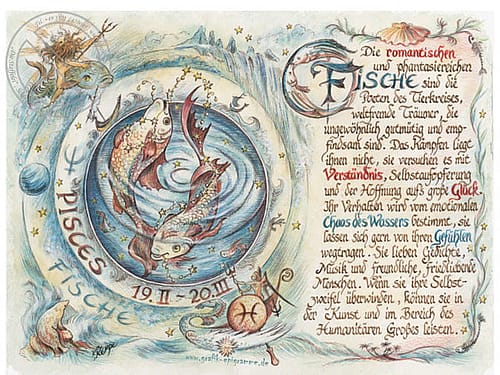 Die romantischen
und phantasiereichen
FISCHE sind die
Poeten des Tierkreises,
weltfremde Träumer, die
ungewöhnlich gutmütig und emp-
findsam sind. Das Kämpfen liegt
ihnen nicht, sie versuchen es mit
Verständnis, Selbstaufopferung
und der Hoffnung aufs große Glück.
Ihr Verhalten wird vom emotionalen
Chaos des Wassers bestimmt, sie
lassen sich gern von ihren Gefühlen
wegtragen. Sie lieben Gedichte,
Musik und freundliche, friedliebende
Menschen. Wenn sie ihre Selbst-
zweifel überwinden, können sie in
der Kunst und im Bereich des
Humanitären Großes leisten.
PISCES
FISCHE
19.II-20.III
www.grafik-epigramme.de